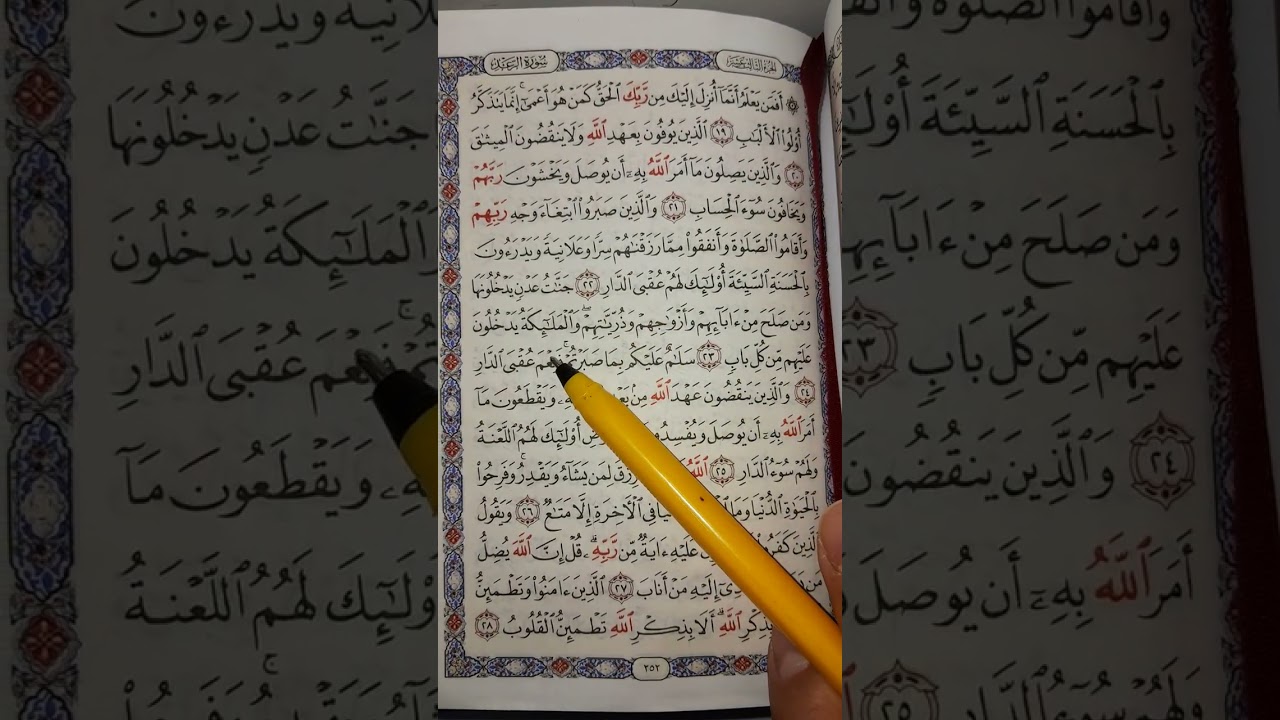 الجزء الثالث عشر سورة الرعد
۞ أَفَمَن يَعْلَمُ أَنَّمَآ أُنزِلَ إِلَيْكَ مِن رَّبِّكَ ٱلْحَقُّ كَمَنْ هُوَ أَعْمَىٰٓ ۚ إِنَّمَا يَتَذَكَّرُ
أُو۟لُوا۟ ٱلْأَلْبَٰبِ ١٩ ٱلَّذِينَ يُوفُونَ بِعَهْدِ ٱللَّهِ وَلَا يَنقُضُونَ ٱلْمِيثَٰقَ
٢٠ وَٱلَّذِينَ يَصِلُونَ مَآ أَمَرَ ٱللَّهُ بِهِۦٓ أَن يُوصَلَ وَيَخْشَوْنَ رَبَّهُمْ
وَيَخَافُونَ سُوٓءَ ٱلْحِسَابِ ٢١ وَٱلَّذِينَ صَبَرُوا۟ ٱبْتِغَآءَ وَجْهِ رَبِّهِمْ
وَأَقَامُوا۟ ٱلصَّلَوٰةَ وَأَنفَقُوا۟ مِمَّا رَزَقْنَٰهُمْ سِرًّا وَعَلَانِيَةً وَيَدْرَءُونَ
بِٱلْحَسَنَةِ ٱلسَّيِّئَةَ أُو۟لَٰٓئِكَ لَهُمْ عُقْبَى ٱلدَّارِ ٢٢ جَنَّٰتُ عَدْنٍ يَدْخُلُونَهَا
وَمَن صَلَحَ مِنْ ءَابَآئِهِمْ وَأَزْوَٰجِهِمْ وَذُرِّيَّٰتِهِمْ ۖ وَٱلْمَلَٰٓئِكَةُ يَدْخُلُونَ
عَلَيْهِم مِّن كُلِّ بَابٍ ٢٣ سَلَٰمٌ عَلَيْكُم بِمَا صَبَرْتُمْ ۚ فَنِعْمَ عُقْبَى ٱلدَّارِ
٢٤ وَٱلَّذِينَ يَنقُضُونَ عَهْدَ ٱللَّهِ مِنۢ وَيَقْطَعُونَ مَآ
أَمَرَ ٱللَّهُ بِهِۦٓ أَن يُوصَلَ أُو۟لَٰٓئِكَ لَهُمُ ٱللَّعْنَةُ
وَلَهُمْ سُوٓءُ ٱلدَّارِ ٢٥ ٱللَّهُ لِمَن يَشَآءُ وَيَقْدِرُ ۚ وَفَرِحُوا۟
بِٱلْحَيَوٰةِ ٱلدُّنْيَا وَمَا فِى ٱلْأَخِرَةِ إِلَّا مَتَٰعٌ ٢٦ وَيَقُولُ
ٱلَّذِينَ كَفَرُوا۟ عَلَيْهِ ءَايَةٌ مِّن رَّبِّهِۦ ۗ قُلْ إِنَّ ٱللَّهَ يُضِلُّ
مَن إِلَيْهِ مَنْ أَنَابَ ٢٧ ٱلَّذِينَ ءَامَنُوا۟ وَتَطْمَئِنُّ
بِذِكْرِ ٱللَّهِ ۗ أَلَا بِذِكْرِ ٱللَّهِ تَطْمَئِنُّ ٱلْقُلُوبُ ٢٨
٢٥٢